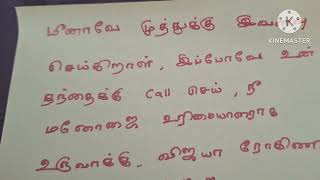 மீனாவே முத்துக்கு
KINEMASTER
செய்கிறாள், இப்போவே உன்
தந்தைக்கு Call செய், நீ
மனோஜை உரிமையாளராக
உருவாக்கு. விஜயா ரோகிண